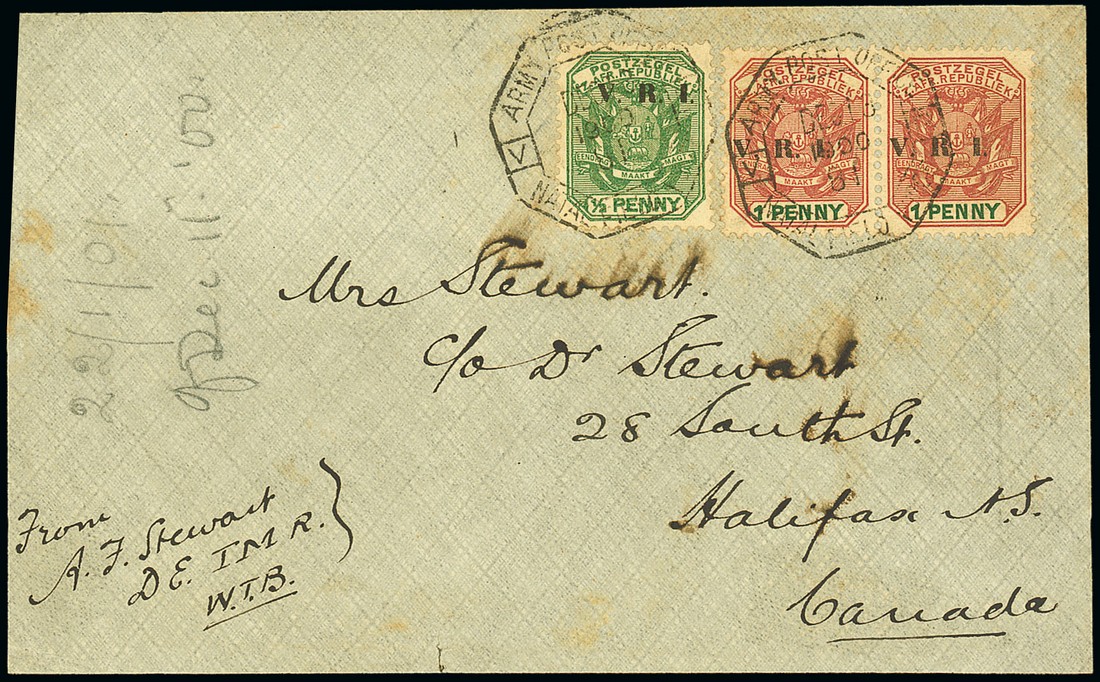 ARMY POST OFFICE
NATAL FIELD
POSTZEGEL
Z. AFR. REPUBLIEK
V. R. I.
EENDRAGT MAAKT MAGT
½ PENNY
ARMY POST OFFICE
DE 13
1900
81
NATAL FIELD
POSTZEGEL
Z. AFR. REPUBLIEK
V. R. I.
EENDRAGT MAAKT MAGT
1 PENNY
POSTZEGEL
Z. AFR. REPUBLIEK
V. R. I.
EENDRAGT MAAKT MAGT
1 PENNY
Mrs Stewart.
c/o Dr Stewart
28 South St.
Halifax N.S.
Canada
From
A. F. Stewart
D E. T M R.
W.T.B.
22/1/01.
Dec 11. '00.